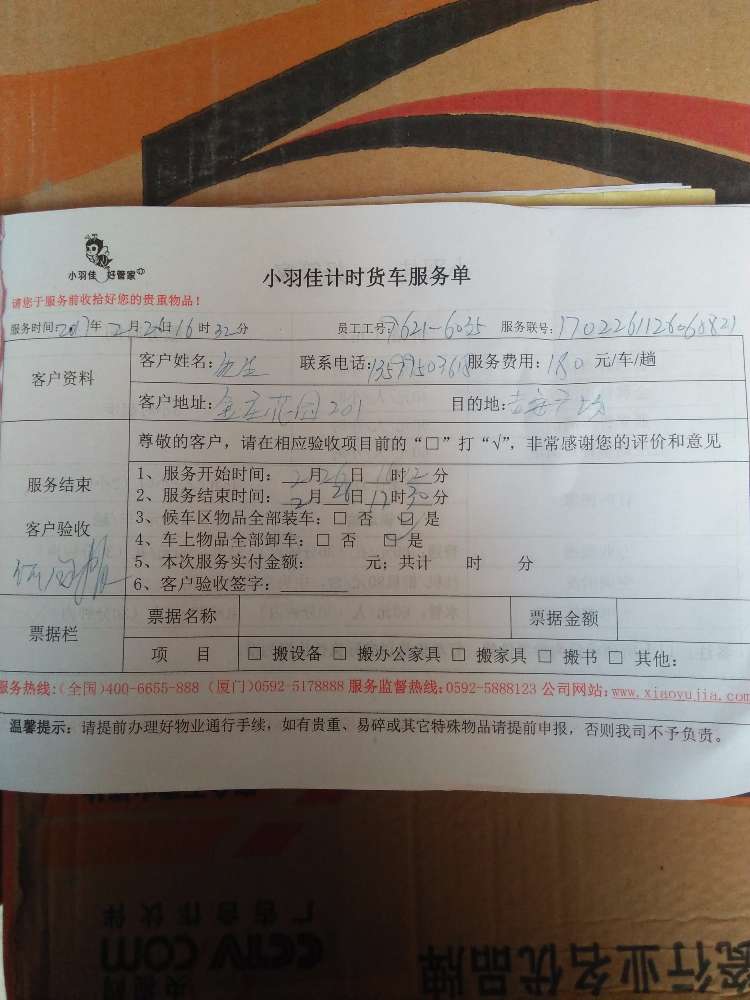 小羽佳 好管家
小羽佳计时货车服务单
请您于服务前收拾好您的贵重物品！
服务时间:2017年 2月26日16时32分 员工工号: 7621-6035 服务联号:
客户资料
客户姓名: 联系电话: 服务费用: 180 元/车/趟
客户地址: 201 目的地:
尊敬的客户，请在相应验收项目前的“□”打“√”，非常感谢您的评价和意见
服务结束
客户验收
1、服务开始时间: 2月26日 16时 分
2、服务结束时间: 2月26日17时30分
3、候车区物品全部装车: □ 否 □ 是
4、车上物品全部卸车: □ 否 □ 是
5、本次服务实付金额: 元; 共计 时 分
6、客户验收签字:
票据栏
票据名称 票据金额
项 目 □ 搬设备 □ 搬办公家具 □ 搬家具 □ 搬书 □ 其他:
服务热线:(全国)400-6655-888 (厦门)0592-5178888 服务监督热线:0592-5888123 公司网站:www.xiaoyujia.com
温馨提示: 请提前办理好物业通行手续，如有贵重、易碎或其它特殊物品请提前申报，否则我司不予负责。
广告合作伙伴
CCTV COM
央视网
瓷行业名优品牌